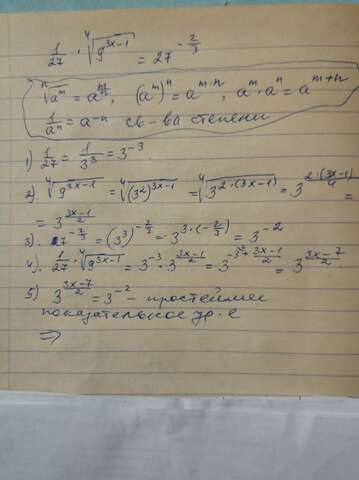 1/27 · ⁴√(9^(3x-1)) = 27^(-2/3)
ⁿ√(a^m) = a^(m/n), (a^m)^n = a^(m·n), a^m · a^n = a^(m+n)
1/a^n = a^(-n) св-ва степени
1) 1/27 = 1/3³ = 3^(-3)
2) ⁴√(9^(3x-1)) = ⁴√((3²)^(3x-1)) = ⁴√(3^(2·(3x-1))) = 3^(2·(3x-1)/4) =
= 3^((3x-1)/2)
3). 27^(-2/3) = (3³)^(-2/3) = 3^(3·(-2/3)) = 3^(-2)
4). 1/27 · ⁴√(9^(3x-1)) = 3^(-3) · 3^((3x-1)/2) = 3^(-3+(3x-1)/2) = 3^((3x-7)/2).
5) 3^((3x-7)/2) = 3^(-2) - простейшее
показательное ур-е
⇒